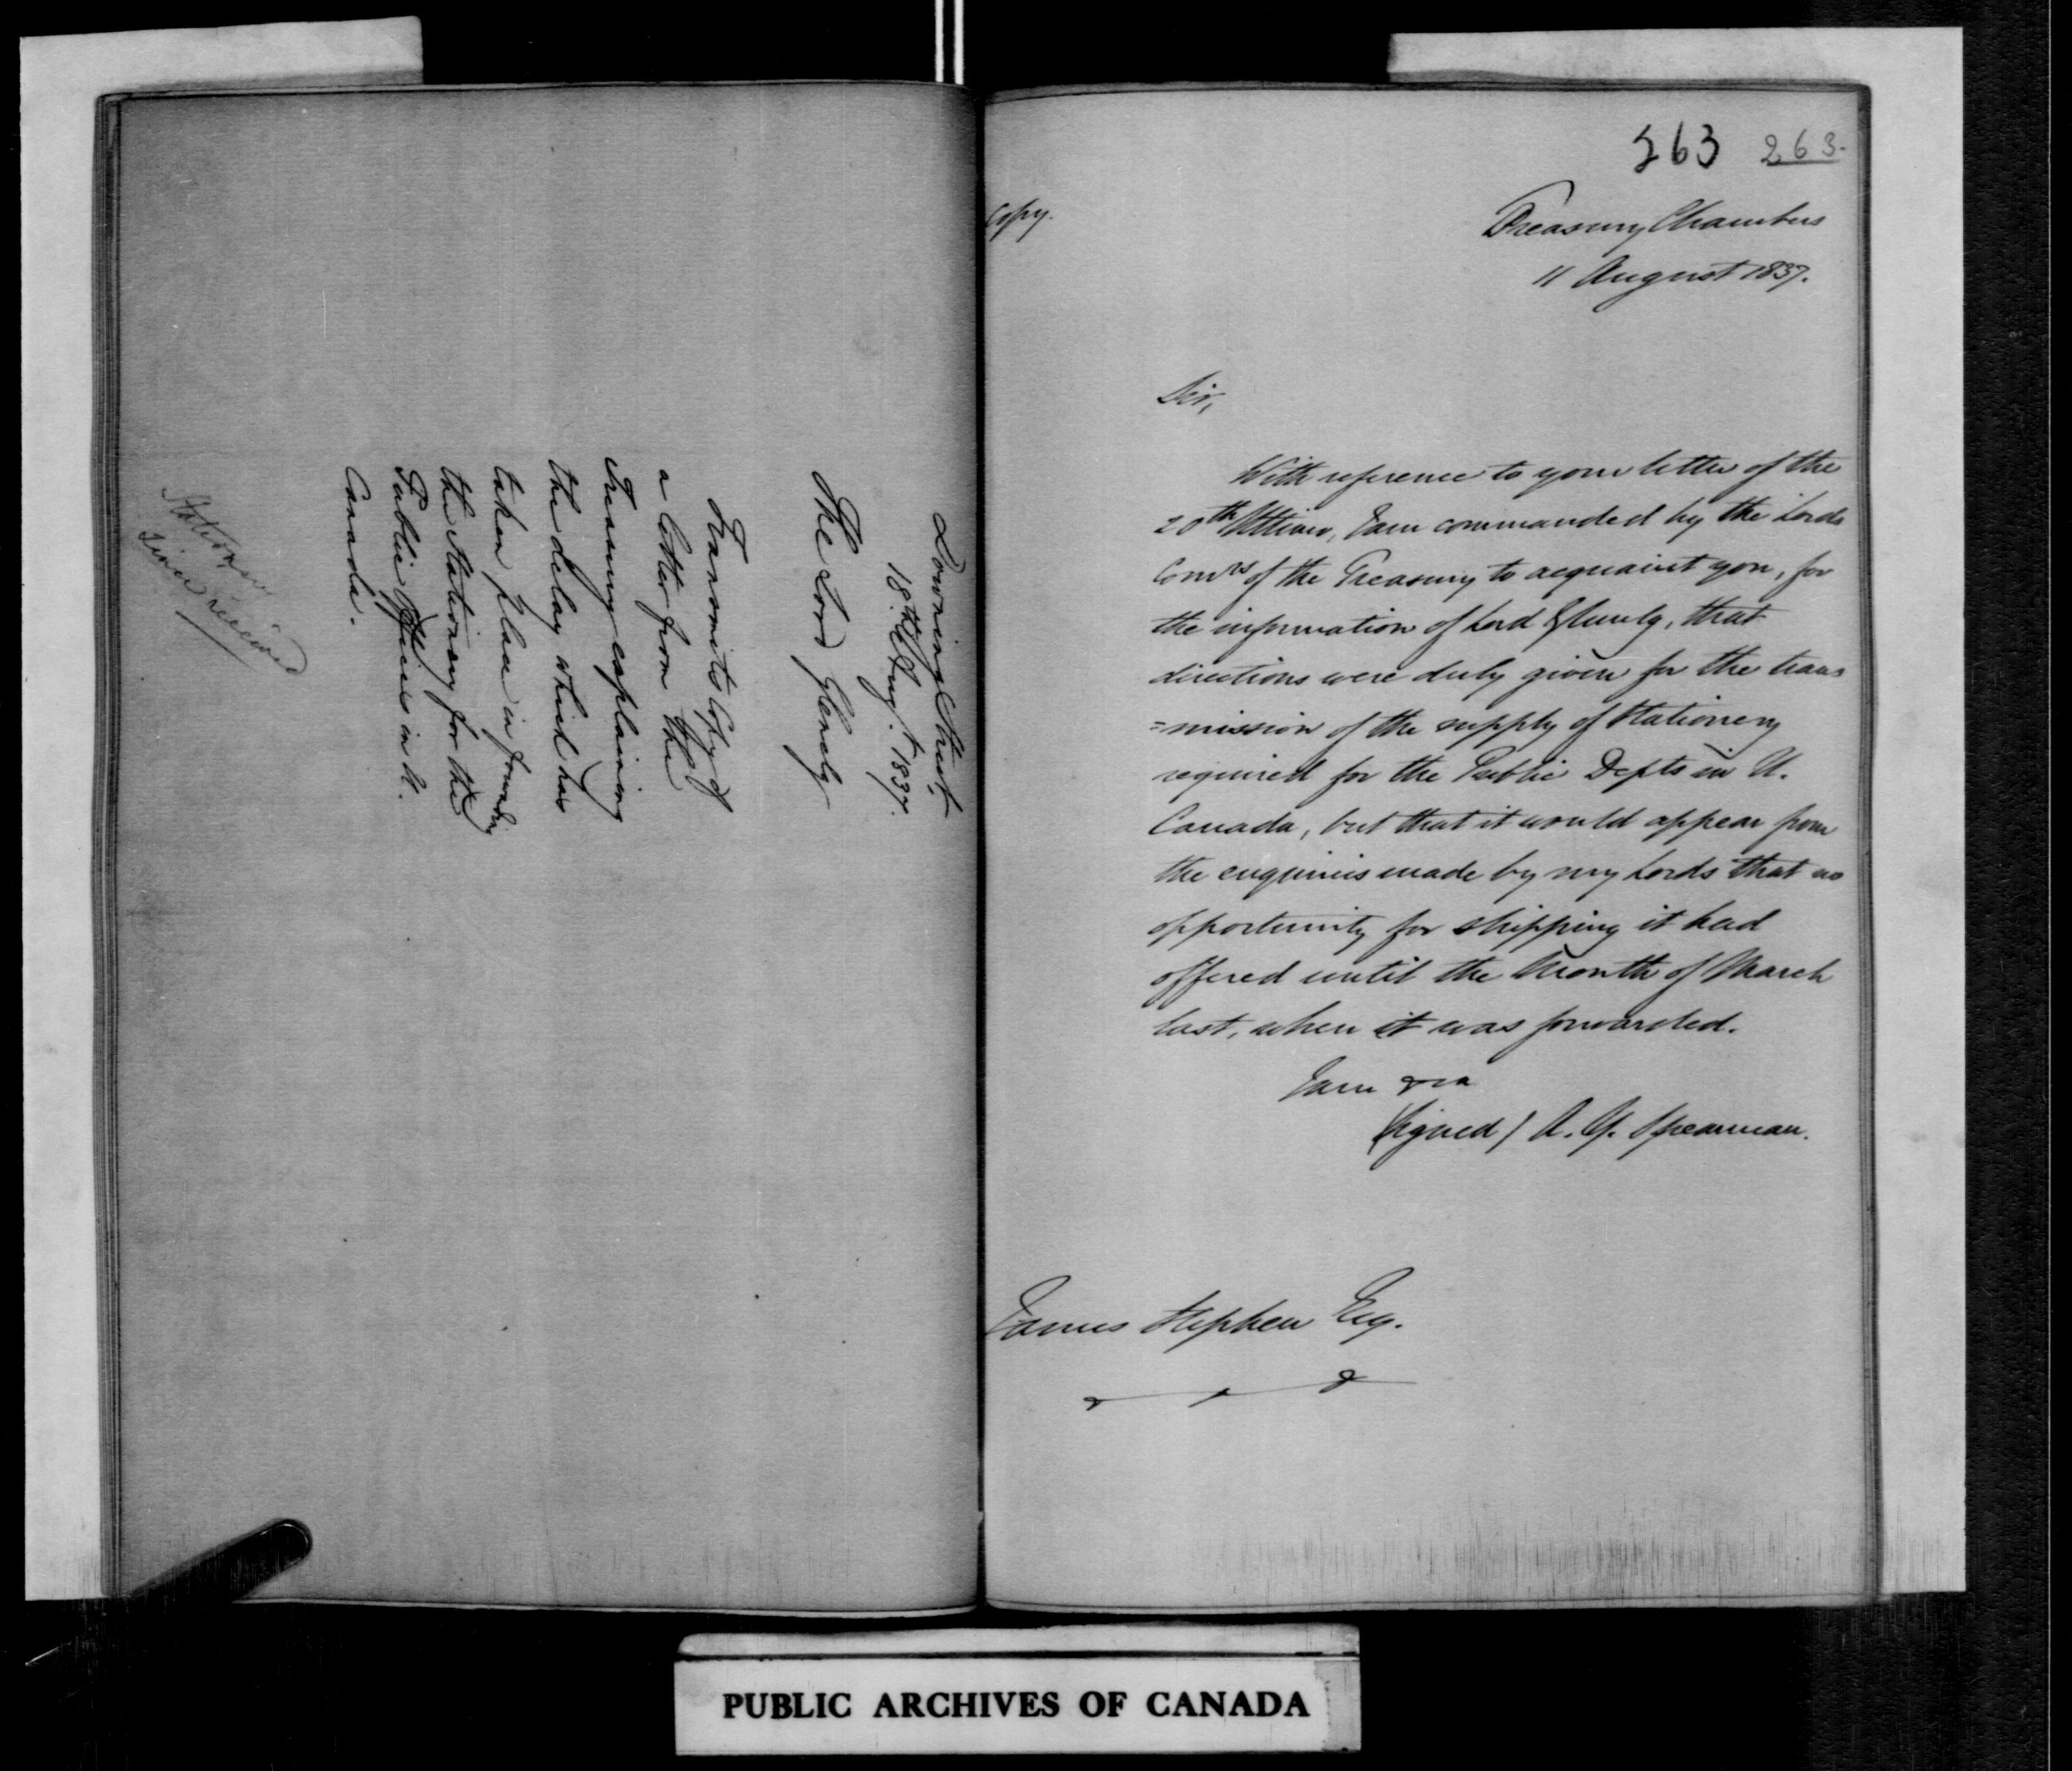 Downing Street,
18th Augt. 1837.
The Lord Glenelg
Transmits Copy of
a letter from the
Treasury explaining
the delay which has
taken place in forwarding
the Stationery for the
Public Offices in U.
Canada.
Stationery
since received
263 263.
Copy.
Treasury Chambers
11 August 1837.
Sir,
With reference to your letter of the
20th Ultimo, I am commanded by the Lords
Comrs of the Treasury to acquaint you, for
the information of Lord Glenelg, that
directions were duly given for the trans
=mission of the supply of Stationery
required for the Public Depts in U.
Canada, but that it would appear from
the enquiries made by my Lords that no
opportunity for shipping it had
offered until the Month of March
last, when it was forwarded.
I am &ca
(Signed) A. Y. Spearman.
James Stephen Esq.
PUBLIC ARCHIVES OF CANADA